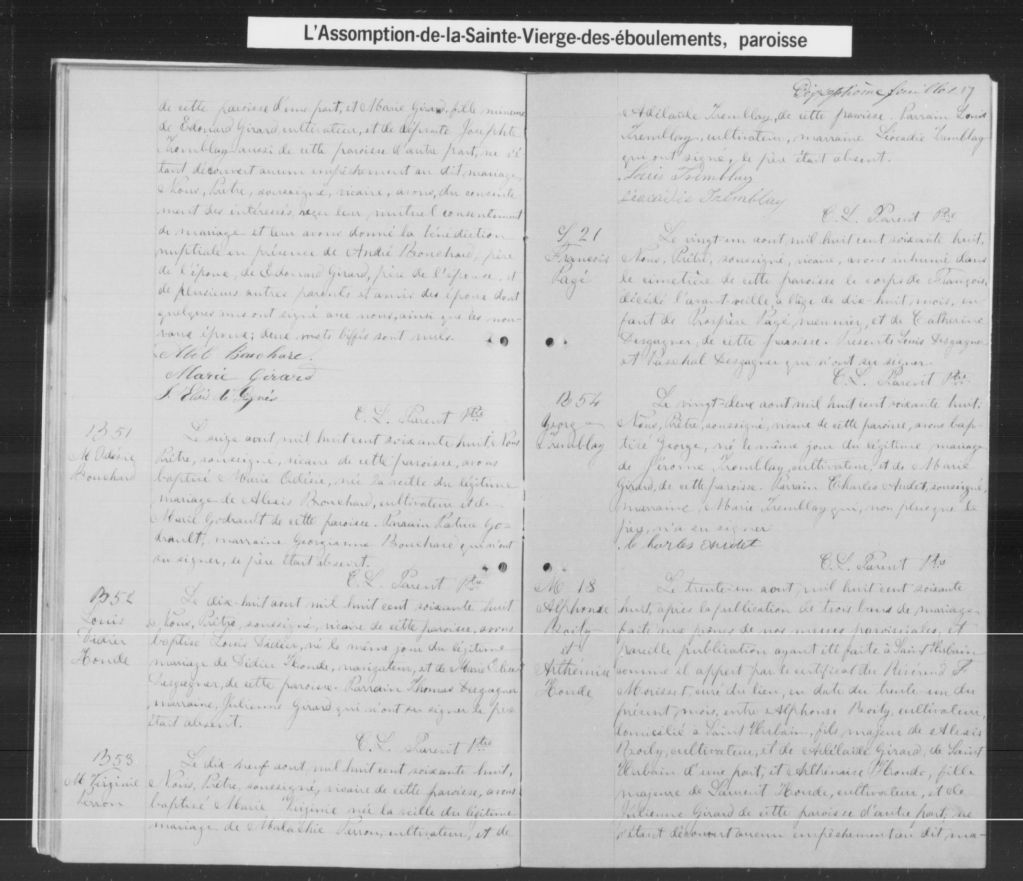 L'Assomption-de-la-Sainte-Vierge-des-éboulements, paroisse
de cette paroisse d'une part, et Marie Girard, fille mineure
de Edouard Girard cultivateur, et de défunte Josephte
Tremblay aussi de cette paroisse d'autre part, ne s'é-
tant découvert aucun empêchement au dit mariage,
Nous, Prêtre, soussigné, vicaire, avons, du consente
ment des intéressés, reçu leur mutuel consentement
de mariage et leur avons donné la bénédiction
nuptiale en présence de André Bouchard, père
de l'époux, de Edouard Girard, père de l'épouse, et
de plusieurs autres parents et amis des époux dont
quelques uns ont signé avec nous, ainsi que les nou-
veaux époux; deux mots biffés sont nuls.
Abel Bouchard.
Marie Girard
C. L. Parent Ptre
B 51
M Odélie
Bouchard
Le seize aout, mil huit cent soixante huit Nous
Prêtre, soussigné, vicaire de cette paroisse, avons
baptisé Marie Odélie, née la veille du légitime
mariage de Alexis Bouchard, cultivateur et de
Marie Godrault de cette paroisse. Parrain Go-
drault, marraine Georgianne Bouchard qui n'ont
su signer, le père était absent.
C. L. Parent Ptre
B 52
Louis
Didier
Honde
Le dix-huit aout mil huit cent soixante huit
Nous, Prêtre, soussigné, vicaire de cette paroisse, avons
baptisé Louis Didier, né le même jour du légitime
mariage de Didier Honde, navigateur, et de Marie
Desgagner, de cette paroisse. Parrain Thomas Desgagner
marraine, Julienne Girard qui n'ont su signer le père
était absent.
C. L. Parent Ptre
B 53
M Virginie
Perron
Le dix-neuf aout, mil huit cent soixante huit,
Nous, Prêtre, soussigné, vicaire de cette paroisse, avons
baptisé Marie Virginie née la veille du légitime
mariage de Malachie Perron, cultivateur, et de
Dixseptième feuillet 17
Adélaïde Tremblay, de cette paroisse. Parrain Louis
Tremblay, cultivateur, marraine Léocadie Tremblay
qui ont signé, le père était absent.
Louis Tremblay
Léocadie Tremblay
C. L. Parent Ptre
S 21
François
Pagé
Le vingt-un aout, mil huit cent soixante huit,
Nous, Prêtre, soussigné, vicaire, avons inhumé dans
le cimetière de cette paroisse le corps de François,
décédé l'avant veille, à l'âge de dix-huit mois, en
fant de Prospère Pagé, meunier, et de Catherine
Desgagner, de cette paroisse. Présents Louis Desgagné
et Paschal Desgagner qui n'ont su signer.
C. L. Parent Ptre
B 54
George
Tremblay
Le vingt-deux aout mil huit cent soixante huit,
Nous, Prêtre, soussigné, vicaire de cette paroisse, avons bap-
tisé George, né le même jour du légitime mariage
de Jérome Tremblay, cultivateur, et de Marie
Girard, de cette paroisse. Parrain Charles Audet, soussigné,
marraine, Marie Tremblay qui, non plus que le
père, n'a su signer
Charles Audet
C. L. Parent Ptre
M 18
Alphonse
Boily
et
Arthémise
Honde
Le trente-un aout, mil huit cent soixante
huit, après la publication de trois bans de mariage
faite aux prônes de nos messes paroissiales, et
pareille publication ayant été faite à Saint Urbain
comme il appert par le certificat du Révérend
Morisset, curé du lieu, en date du trente un du
présent mois, entre Alphonse Boily, cultivateur,
domicilié à Saint Urbain, fils majeur de Alexis
Boily, cultivateur, et de Adélaide Girard, de Saint
Urbain d'une part, et Arthémise Honde, fille
majeure de Honde, cultivateur, et de
Julienne Girard de cette paroisse d'autre part, ne
s'étant découvert aucun empêchement au dit, ma-